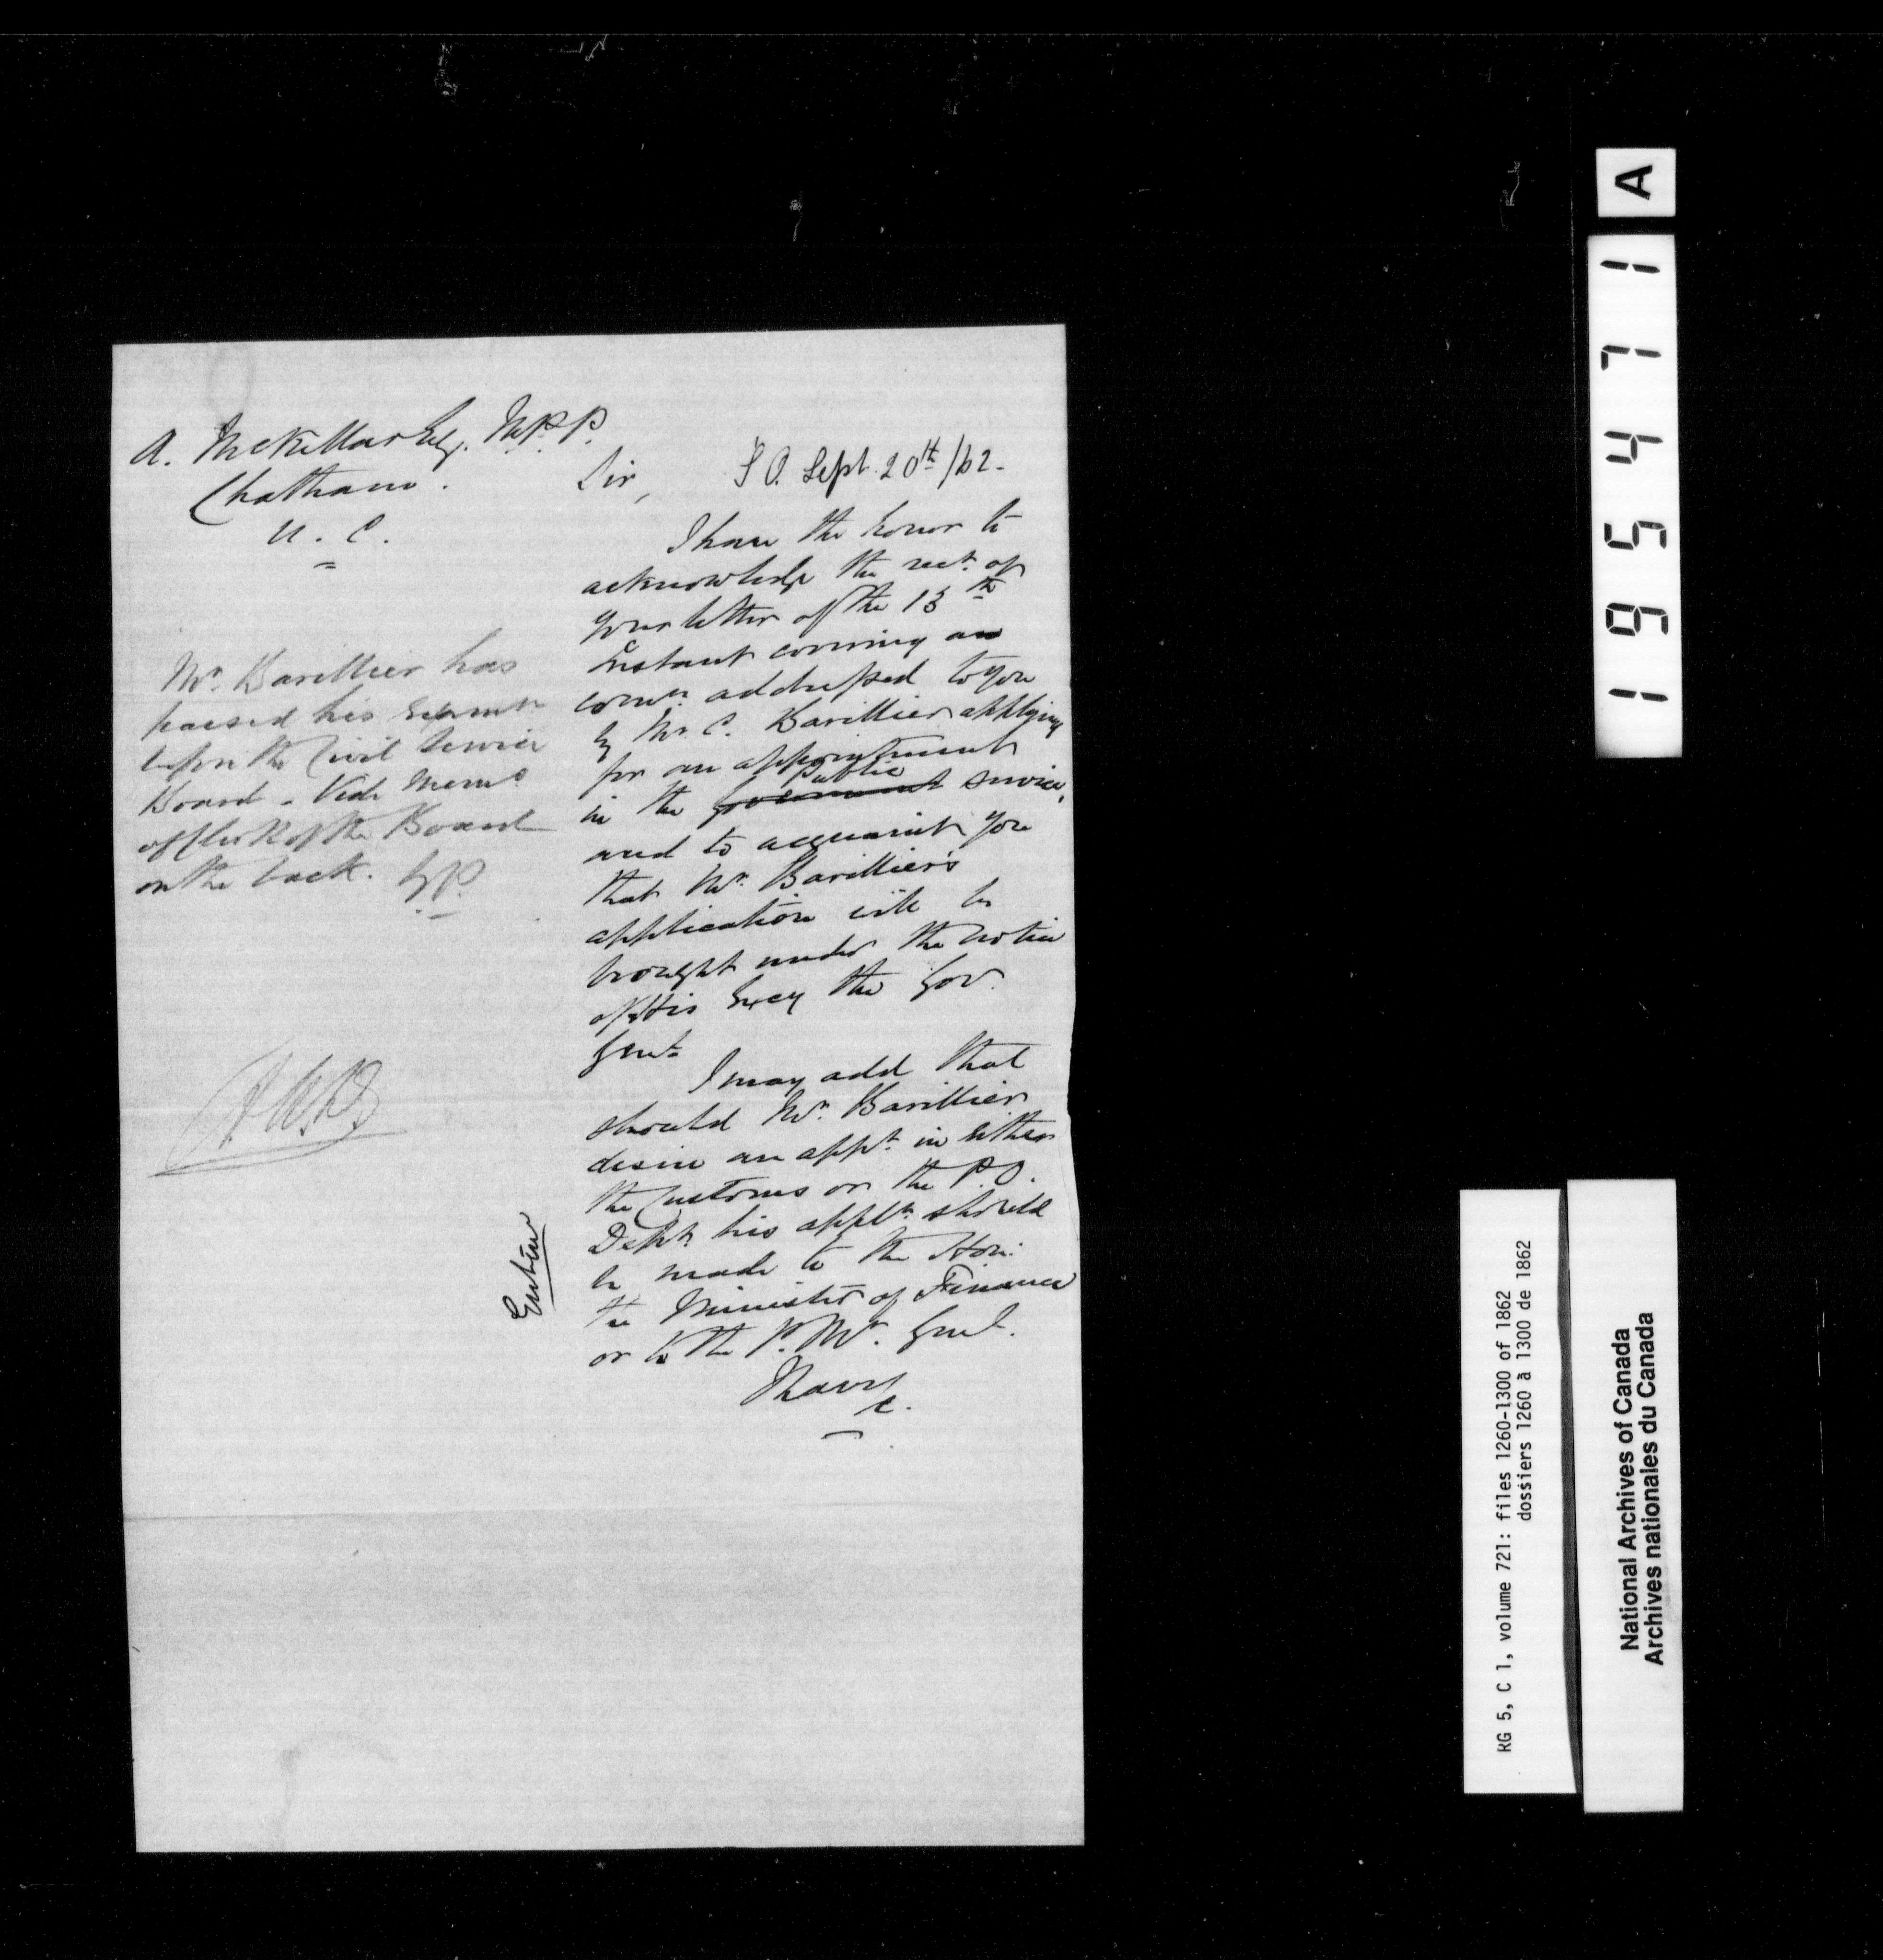 A. McKellar Esq. M.P.P.
Chatham.
U. C.
S O. Sept. 20th /62-
Sir,
I have the honor to
acknowledge the rect. of
your letter of the 13th
Instant covering an
comn. addressed to you
by Mr. C. Barillier applying
for an appointment
in the Government Public service,
and to acquaint you
that Mr. Barillier's
application will be
brought under the notice
of His Excy the Gov.
Genl.
I may add that
should Mr. Barillier
desire an appt. in either
the Customs or the P.O.
Dept. his appltn. should
be made to the Hon:
the Minister of Finance
or to the P. Mr. Genl.
I have
&c.
Mr. Barillier has
passed his Examn
before the Civil Service
Board - Vide Memo
of Clerk of the Board
on the back.
Entered
A
195471
RG 5, C 1, volume 721: files 1260-1300 of 1862
dossiers 1260 à 1300 de 1862
National Archives of Canada
Archives nationales du Canada